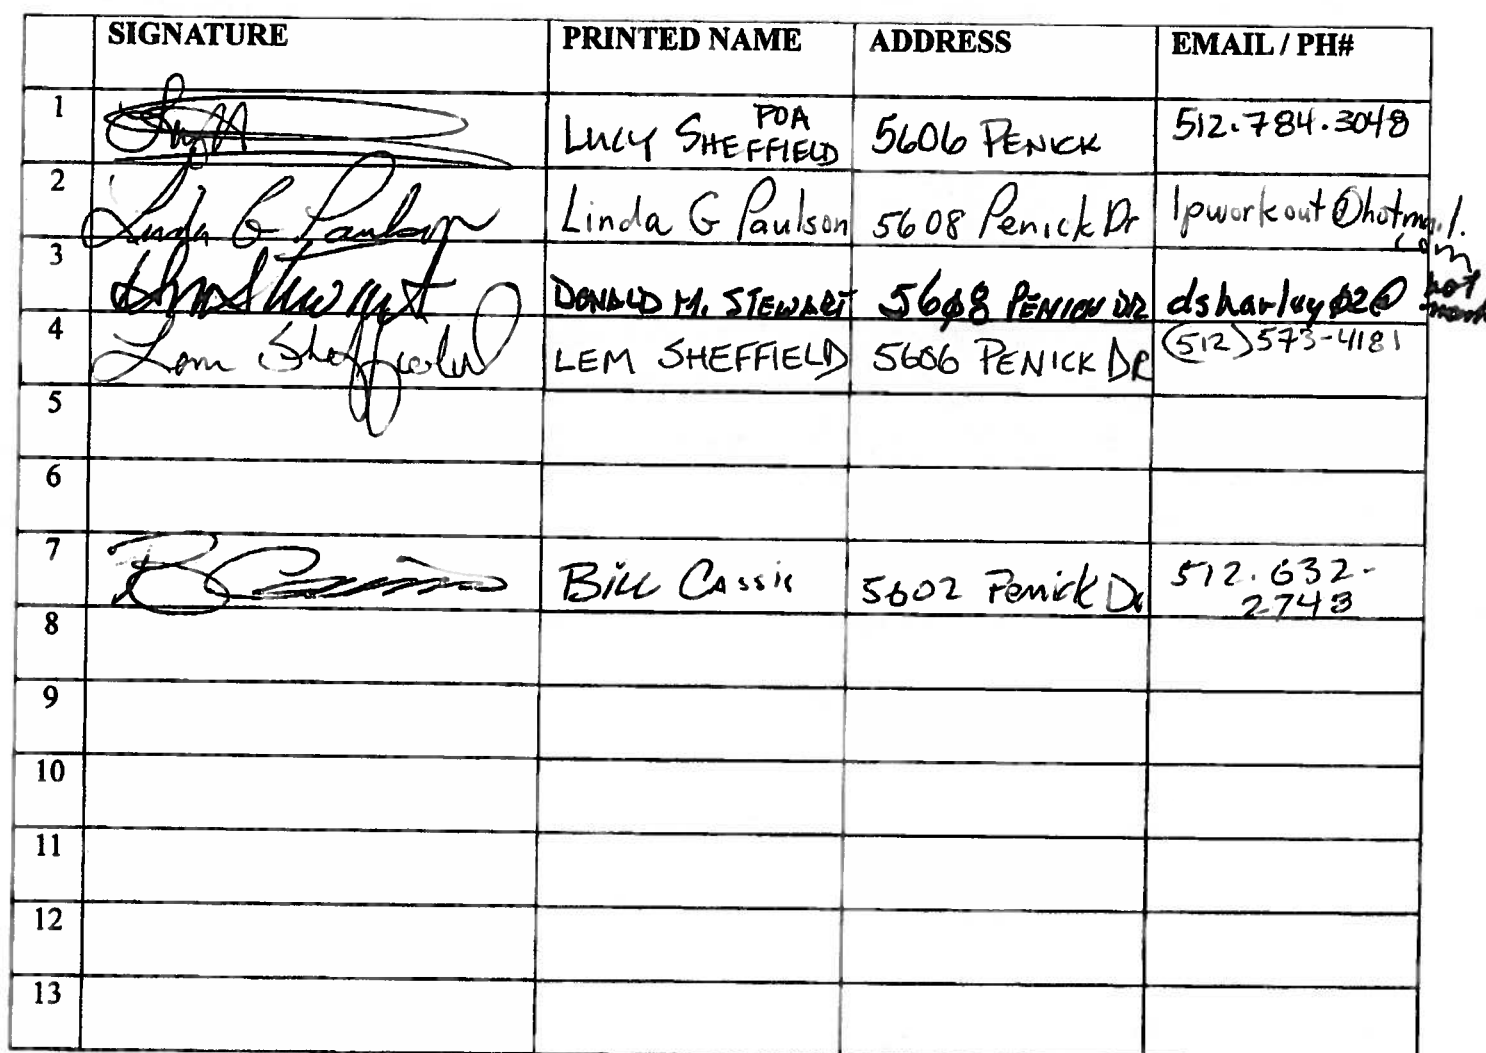 SIGNATURE PRINTED NAME ADDRESS EMAIL / PH#
1 LUCY SHEFFIELD POA 5606 PENICK 512.784.3048
2 Linda G Paulson Linda G Paulson 5608 Penick Dr lpworkout@hotmail.
com
3 DONALD M. STEWART 5608 PENICK DR dsharley02@
hot
4 Lem Sheffield LEM SHEFFIELD 5606 PENICK DR (512) 573-4181
5
6
7 BILL CASSIS 5602 Penick Dr 512.632-
2743
8
9
10
11
12
13